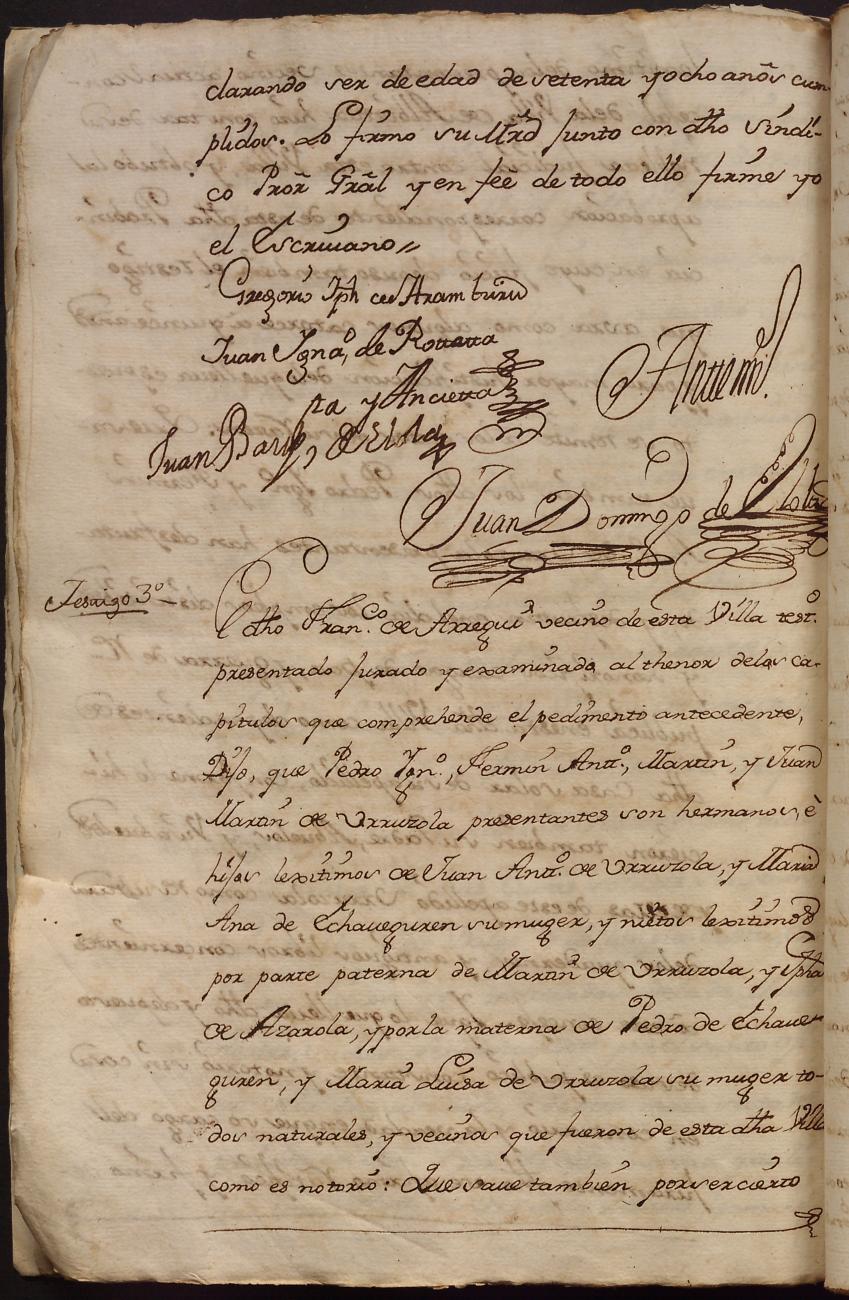 clarando ser de edad de setenta y ocho años cum
plidos. Lo firmo su Mrd junto con dho Sindi-
co Pror Gräl y en feè de todo ello firmè yo
el Escriuano //
Gregorio Jph de Aramburu
Juan Ygnaº, de Rottetta
y Ancietta
Ante mi
Juan Baup
Juan Domingo de
Testigo 3º
El dho Fran.co de Arregui vecino de esta Villa testº.
presentado jurado y examinado, al thenor delos ca-
pitulos que comprehende el pedimento antecedente,
Dijo, que Pedro Ygnº., Fermin Anttº., Martin, y Juan
Martin de Vrruzola presentantes son hermanos, è
hijos lexitimos de Juan Anttº. de Vrruzola, y Maria
Ana de Echaueguren su muger, y nietos lexitimos
por parte paterna de Martin de Vrruzola, y Jpha
de Azarola, y por la materna de Pedro de Echaue-
guren, y Maria Luisa de Vrruzola su muger to-
dos naturales, y vecinos que fueron de esta dha Villa
como es notorio: Que saue tambien por ser cierto